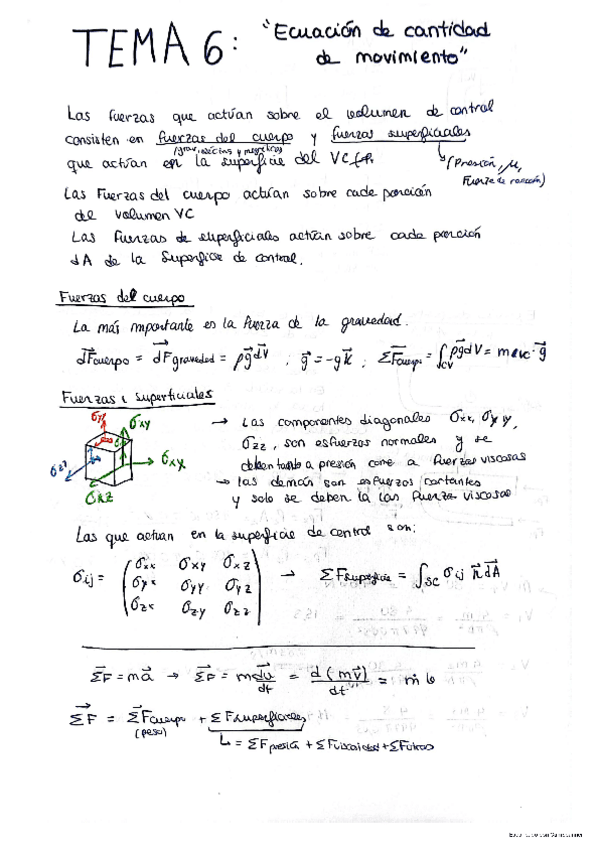 TEMA 6: "Ecuación de cantidad
de movimiento"
Las fuerzas que actúan sobre el volumen de control
consisten en fuerzas del cuerpo y fuerzas superficiales
que actúan en la superficie del VC
(Presión, μ,
Fuerza de reacción)
Las Fuerzas del cuerpo actúan sobre cada porción
del volumen VC
Las fuerzas de superficiales actúan sobre cada porción
dA de la Superficie de control.
Fuerzas del cuerpo
La más importante es la fuerza de la gravedad.
dF⃗cuerpo = dF⃗gravedad = ρg⃗dV ; g⃗ = -gk⃗ ; ΣF⃗cuerpo = ∫CV ρg⃗dV = mcvc·g⃗
Fuerzas superficiales
σyy σxy
σxy
σzz
σxz
→ Las componentes diagonales σxx, σyy,
σzz, son esfuerzos normales y se
deben tanto a presión como a fuerzas viscosas
→ las demás son esfuerzos cortantes
y solo se deben la las fuerza viscosas
Las que actúan en la superficie de control son:
σij = (σxx σxy σxz
σyx σyy σyz
σzx σzy σzz) → ΣFsuperficie = ∫SC σij n⃗ dA
ΣF⃗ = ma⃗ → ΣF⃗ = m dv⃗/dt = d(mv⃗)/dt = ṁ
ΣF⃗ = ΣF⃗cuerpo + ΣFsuperficiales
(peso)
↳ = ΣFpresión + ΣFviscosidad + ΣFotras